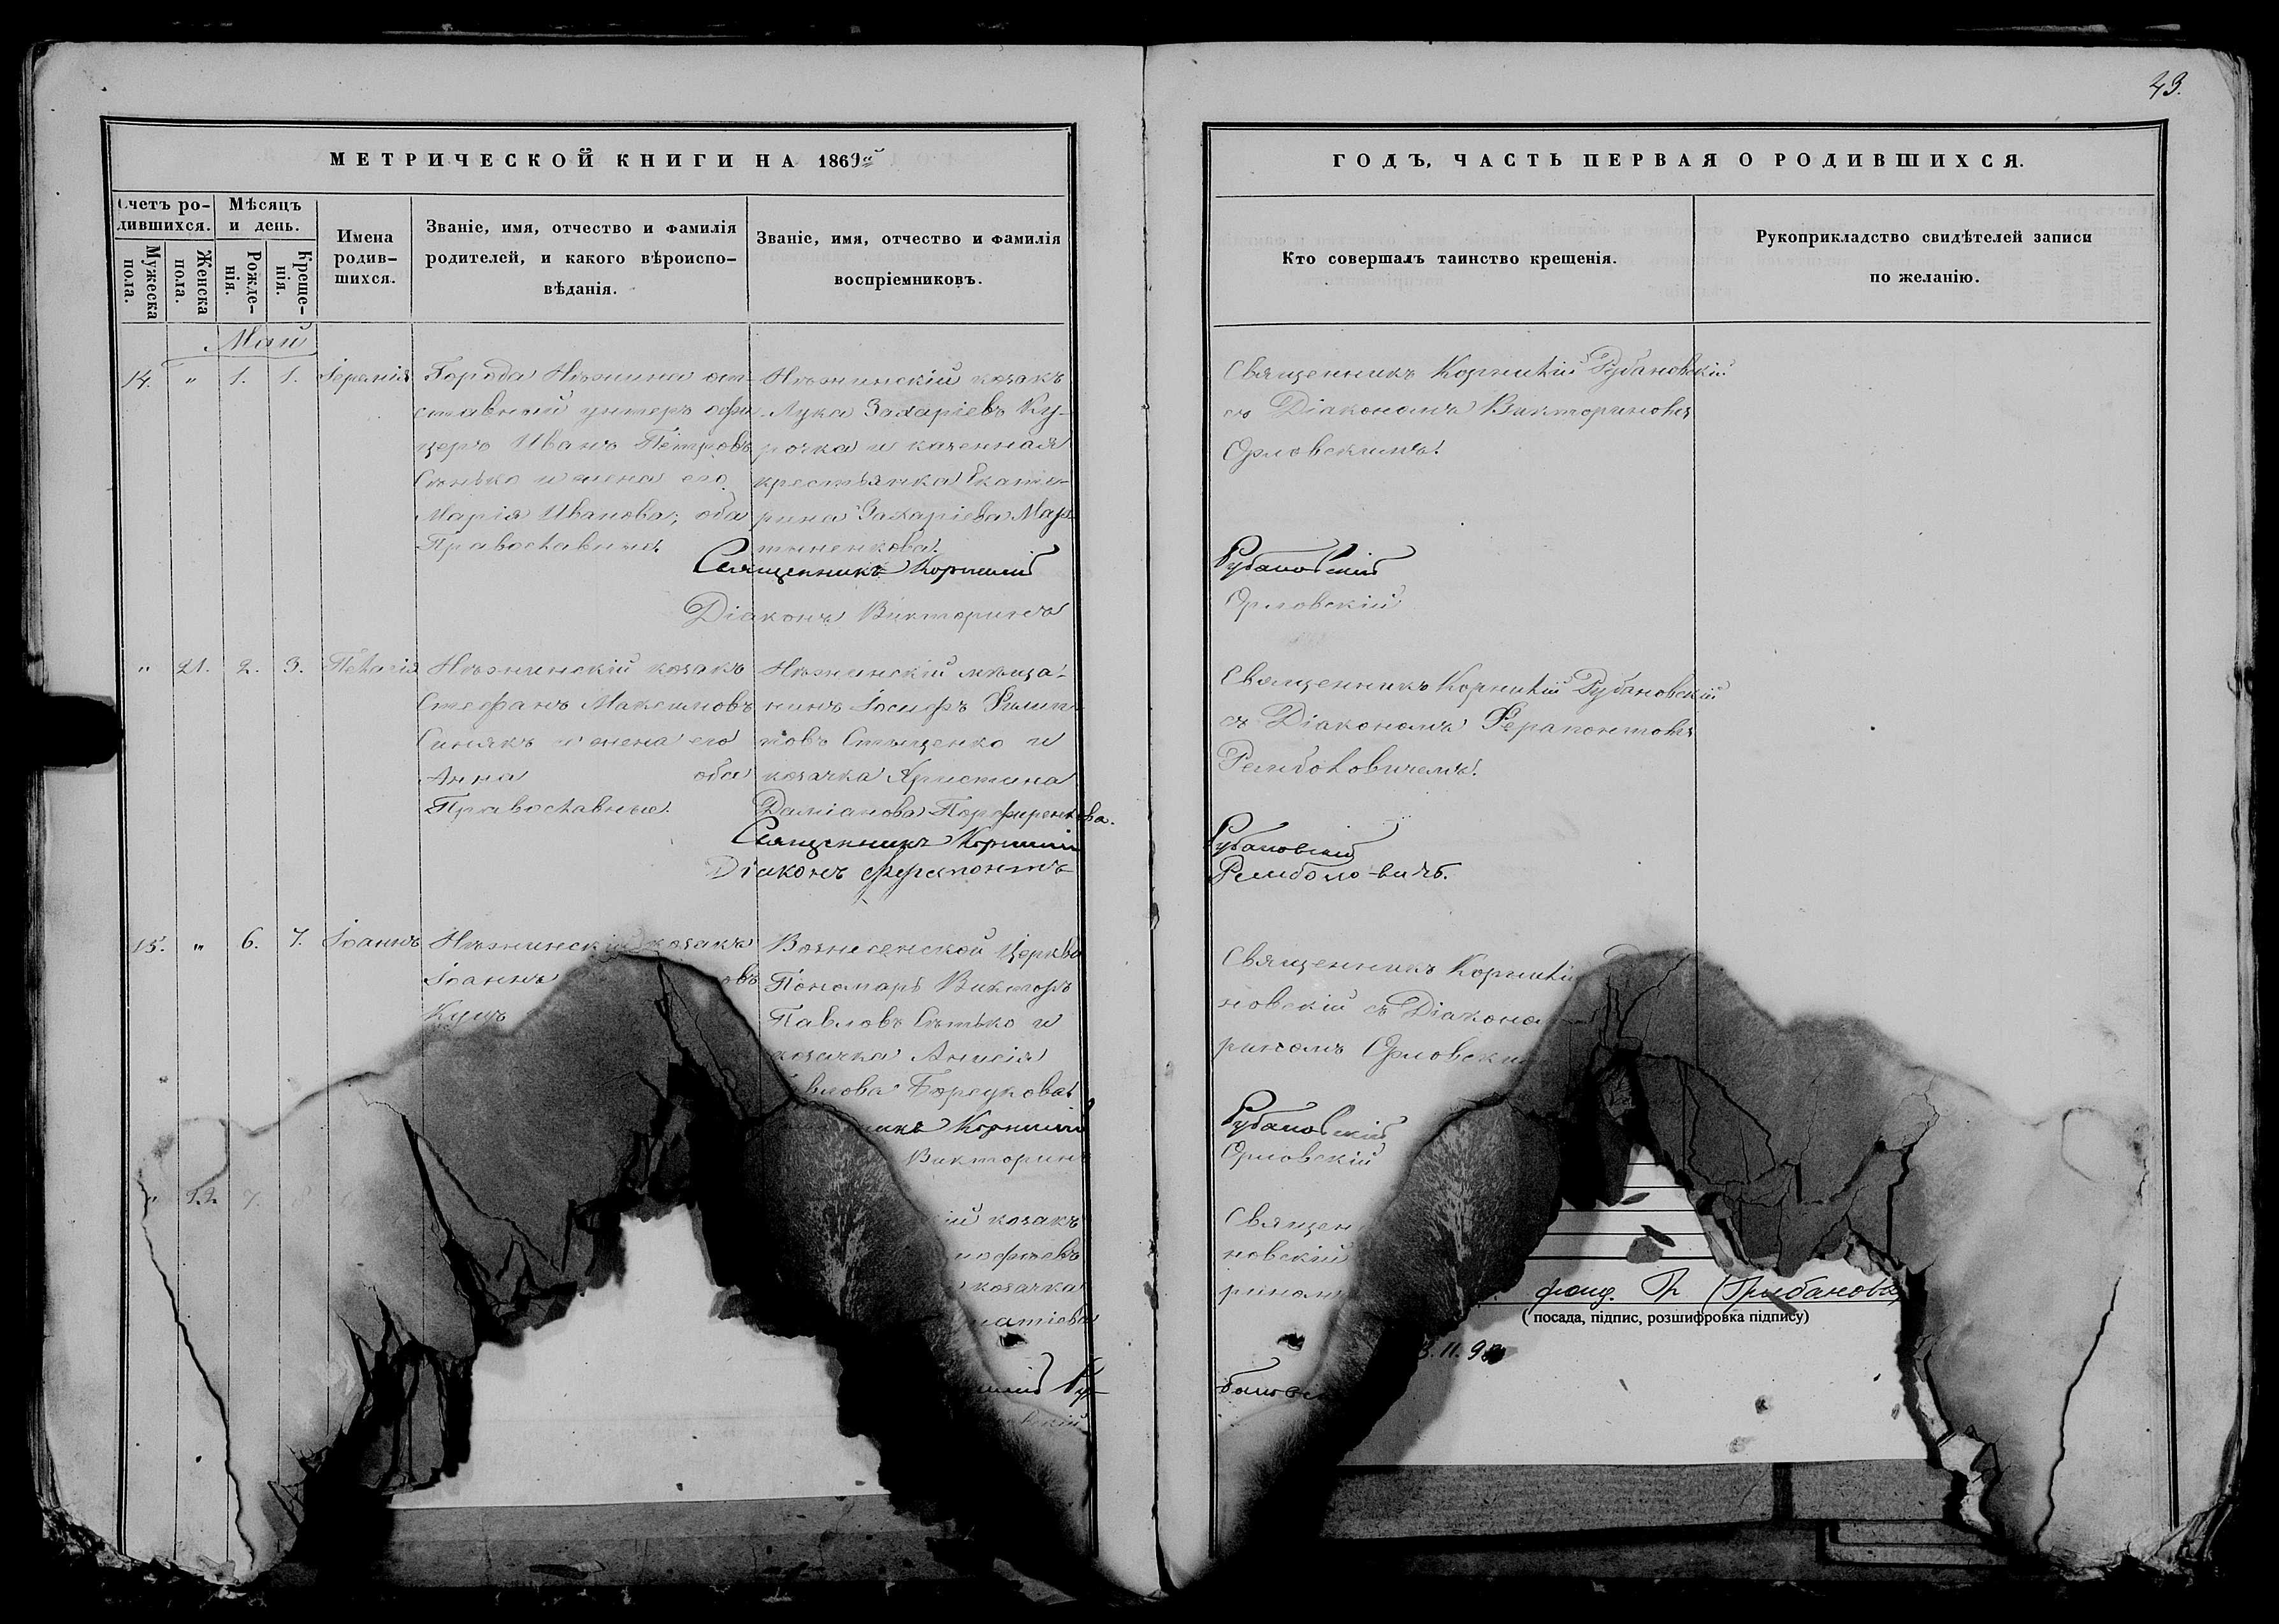 43.
МЕТРИЧЕСКОЙ КНИГИ НА 1869й
ГОДЪ, ЧАСТЬ ПЕРВАЯ О РОДИВШИХСЯ.
Счетъ ро-
дившихся.
Мужеска
пола.
Женска
пола.
Мѣсяцъ
и день.
Рожде-
нія.
Креще-
нія.
Имена
родив-
шихся.
Званіе, имя, отчество и фамилія
родителей, и какого вѣроиспо-
вѣданія.
Званіе, имя, отчество и фамилія
воспріемниковъ.
Кто совершалъ таинство крещенія.
Рукоприкладство свидѣтелей записи
по желанію.
Май
14. " 1. 1. Іеремія
Города Нѣжина от-
ставной унтеръ офи-
церъ Иванъ Петровъ
Сѣнько и жена его
Марія Иванова; оба
Православные.
Нѣжинскій козакъ
Лука Захаріевъ Ку-
рочка и казенная
крестьянка Екате-
рина Захаріева Мар-
тыненкова.
Священникъ Корнилій Рубановскій
съ Діакономъ Викториномъ
Орловскимъ.
Священникъ Корнилій Рубановскій
Діаконъ Викторинъ Орловскій
" 21. 2. 3. Пелагія
Нѣжинскій козакъ
Стефанъ Максимовъ
Синякъ и жена его
Анна оба
Православные.
Нѣжинскій мѣща-
нинъ Іосифъ Филип-
повъ Стыценко и
козачка Христина
Даміанова Порфиренкова.
Священникъ Корнилій Рубановскій
съ Діакономъ Ферапонтомъ
Ремболовичемъ.
Священникъ Корнилій Рубановскій
Діаконъ Ферапонтъ Ремболовичъ.
15. " 6. 7. Іоаннъ
Нѣжинскій козакъ
Іоаннъ овъ
Кущъ
Вознесенской Церкви
Пономарь Викторъ
Павловъ Сѣтько и
козачка Анисія
влова Борсукова.
Священникъ Корнилі
новскій съ Діаконо
риномъ Орловски
никъ Корнилій Рубановскій
Викторинъ Орловскій
" 22. 7.
ій козакъ
мофѣевъ
козачка
натіева
Священ
новскій
рином
илій Ру-
бановс
овскій
фонд. Гр (Грибанова)
( посада, підпис, розшифровка підпису)
3.11.9